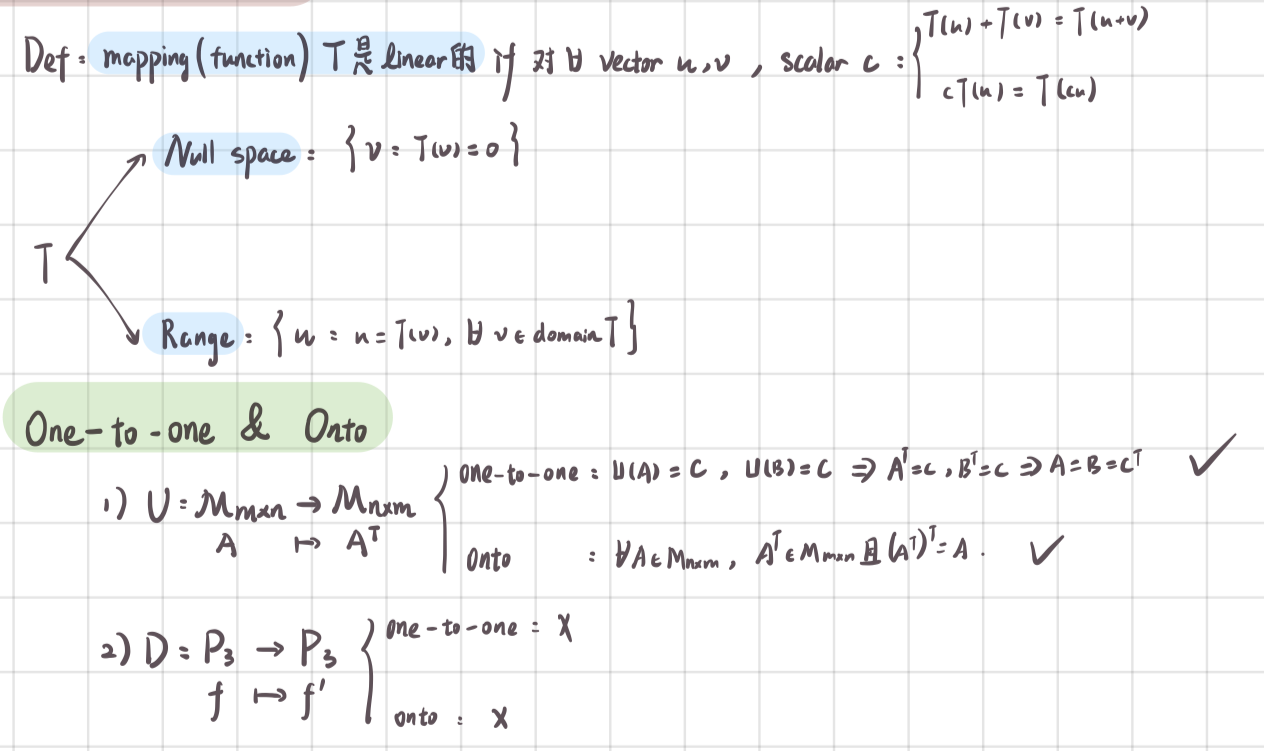 Def: mapping (function) T 是 linear 的 if 对 ∀ vector u,v , scalar c : { T(u) + T(v) = T(u+v)
cT(u) = T(cu)
Null space : { v : T(v) = 0 }
T
Range : { u : u = T(v), ∀ v ∈ domain T }
One-to-one & Onto
1) U : Mm×n → Mn×m { one-to-one : U(A) = C , U(B) = C ⇒ Aᵀ=C , Bᵀ=C ⇒ A=B=Cᵀ ✓
A ↦ Aᵀ
Onto : ∀A ∈ Mn×m , Aᵀ ∈ Mm×n 且 (Aᵀ)ᵀ = A . ✓
2) D : P3 → P3 { one-to-one : X
f ↦ f'
onto : X